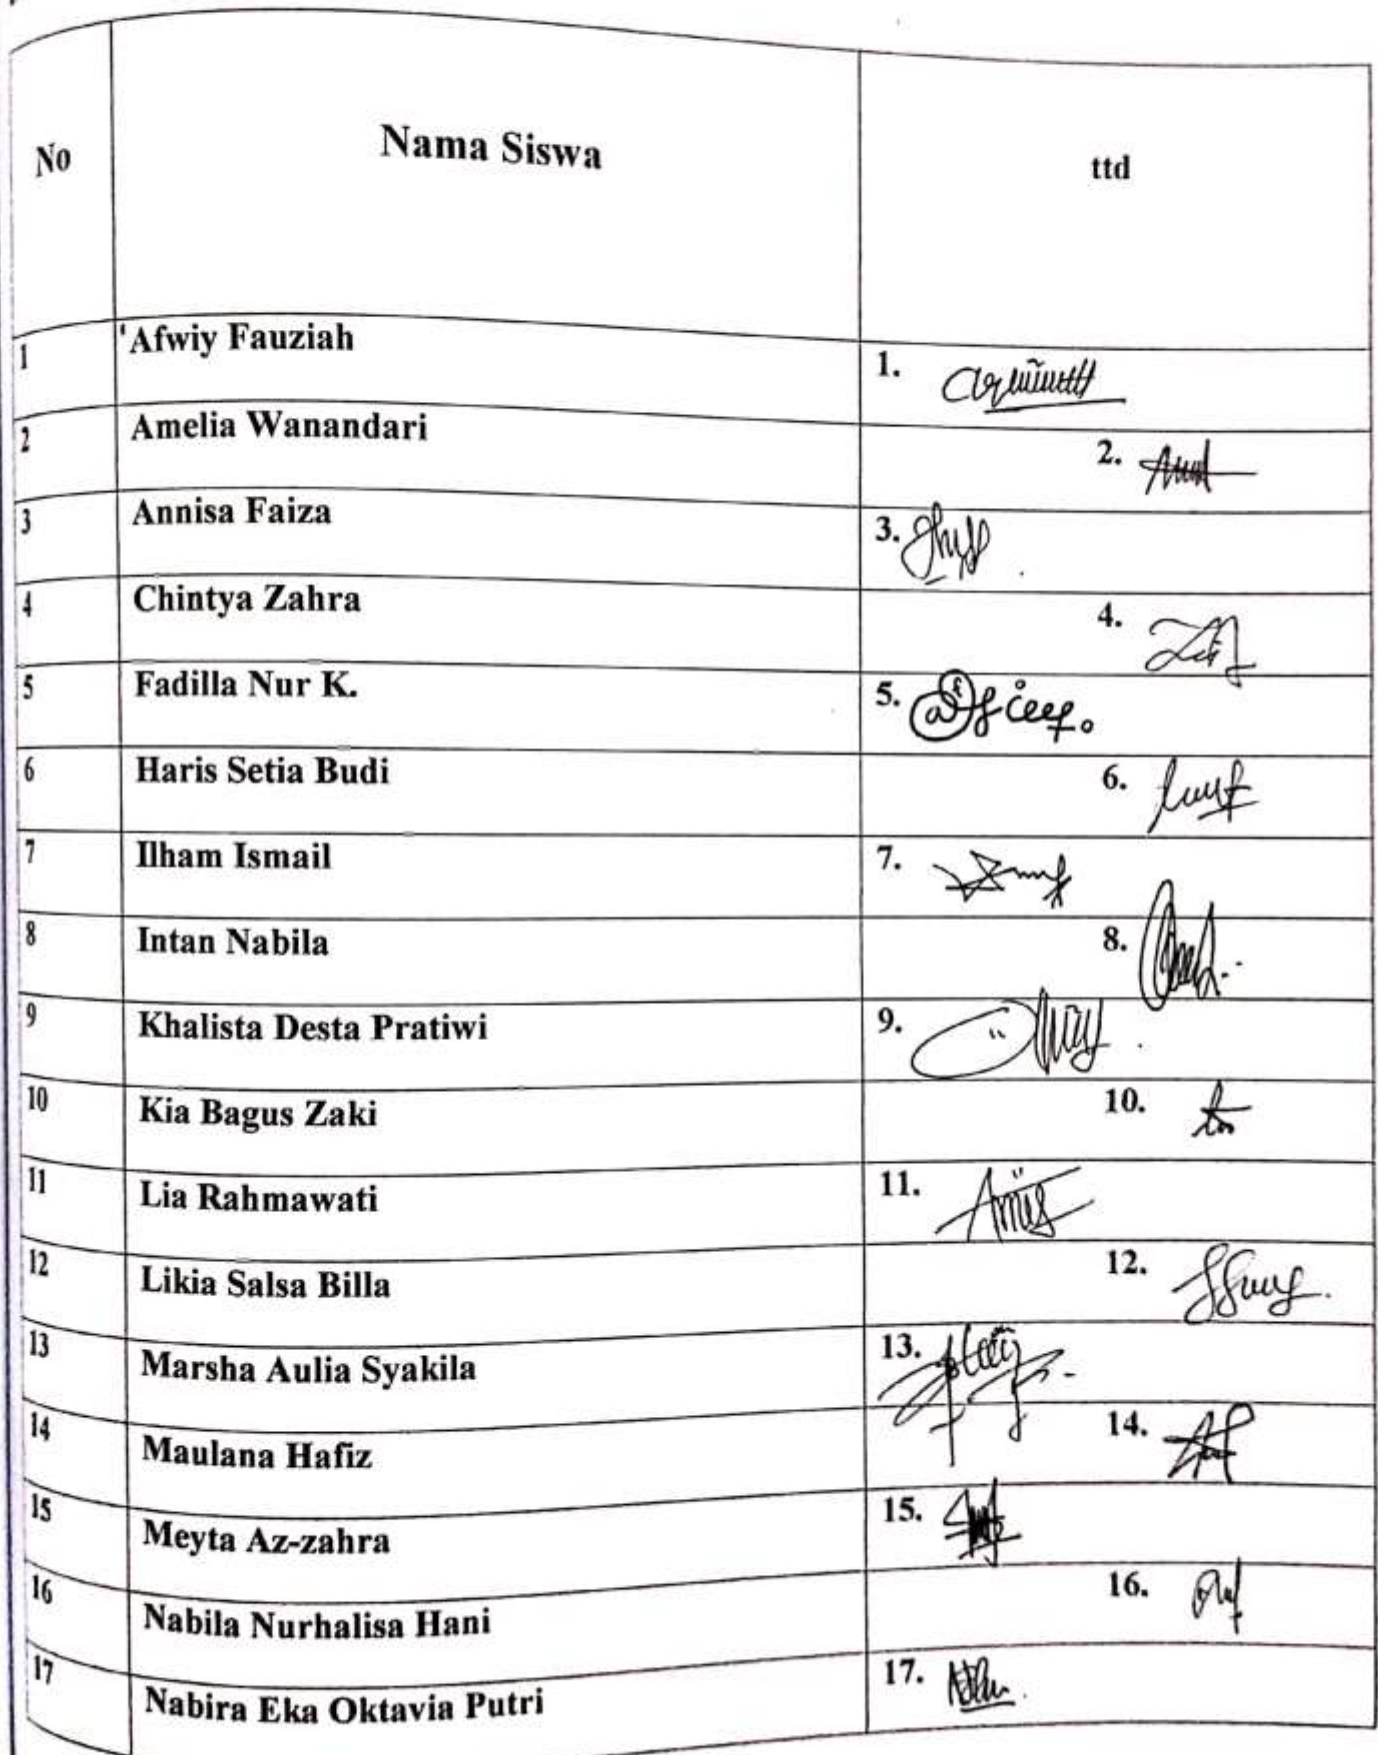 No Nama Siswa ttd
1 Afwiy Fauziah 1.
2 Amelia Wanandari 2.
3 Annisa Faiza 3.
4 Chintya Zahra 4.
5 Fadilla Nur K. 5.
6 Haris Setia Budi 6.
7 Ilham Ismail 7.
8 Intan Nabila 8.
9 Khalista Desta Pratiwi 9.
10 Kia Bagus Zaki 10.
11 Lia Rahmawati 11.
12 Likia Salsa Billa 12.
13 Marsha Aulia Syakila 13.
14 Maulana Hafiz 14.
15 Meyta Az-zahra 15.
16 Nabila Nurhalisa Hani 16.
17 Nabira Eka Oktavia Putri 17.